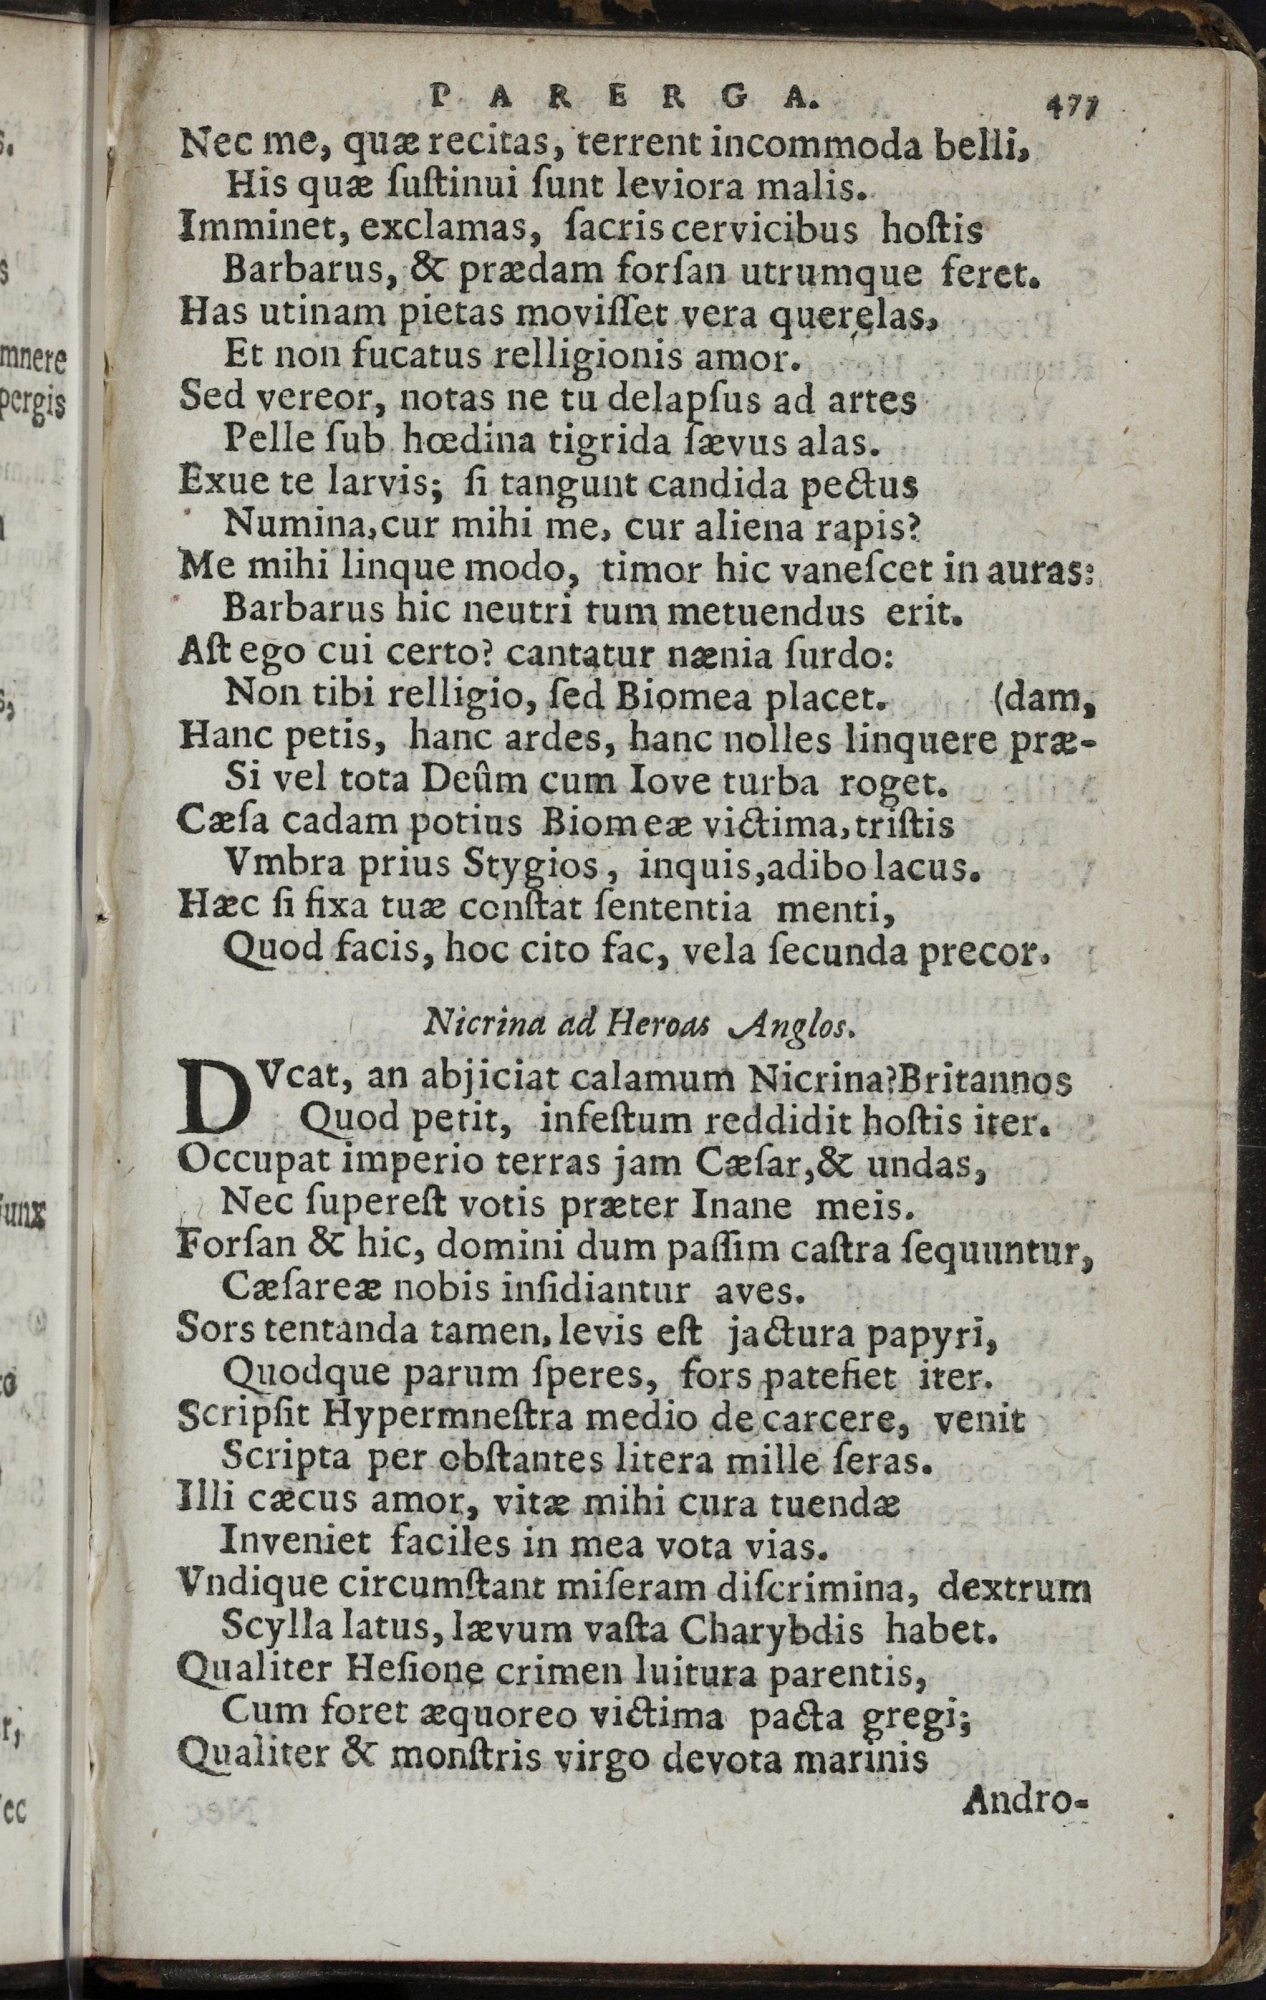 PARERGA. 477
Nec me, quæ recitas, terrent incommoda belli,
His quæ ſuſtinui ſunt leviora malis.
Imminet, exclamas, ſacris cervicibus hoſtis
Barbarus, & prædam forſan utrumque feret.
Has utinam pietas moviſſet vera querelas,
Et non fucatus relligionis amor.
Sed vereor, notas ne tu delapſus ad artes
Pelle ſub hœdina tigrida ſævus alas.
Exue te larvis; ſi tangunt candida pectus
Numina, cur mihi me, cur aliena rapis?
Me mihi linque modo, timor hic vaneſcet in auras:
Barbarus hic neutri tum metuendus erit.
Aſt ego cui certo? cantatur nænia ſurdo:
Non tibi relligio, ſed Biomea placet. (dam,
Hanc petis, hanc ardes, hanc nolles linquere præ-
Si vel tota Deûm cum Iove turba roget.
Cæſa cadam potius Biomeæ victima, triſtis
Vmbra prius Stygios, inquis, adibo lacus.
Hæc ſi fixa tuæ conſtat ſententia menti,
Quod facis, hoc cito fac, vela ſecunda precor.
Nicrina ad Heroas Anglos.
DVcat, an abjiciat calamum Nicrina? Britannos
Quod petit, infeſtum reddidit hoſtis iter.
Occupat imperio terras jam Cæſar, & undas,
Nec ſupereſt votis præter Inane meis.
Forſan & hic, domini dum paſſim caſtra ſequuntur,
Cæſareæ nobis inſidiantur aves.
Sors tentanda tamen, levis eſt jactura papyri,
Quodque parum ſperes, fors patefiet iter.
Scripſit Hypermneſtra medio de carcere, venit
Scripta per obſtantes litera mille ſeras.
Illi cæcus amor, vitæ mihi cura tuendæ
Inveniet faciles in mea vota vias.
Vndique circumſtant miſeram diſcrimina, dextrum
Scylla latus, lævum vaſta Charybdis habet.
Qualiter Heſione crimen luitura parentis,
Cum foret æquoreo victima pacta gregi;
Qualiter & monſtris virgo devota marinis
Andro-